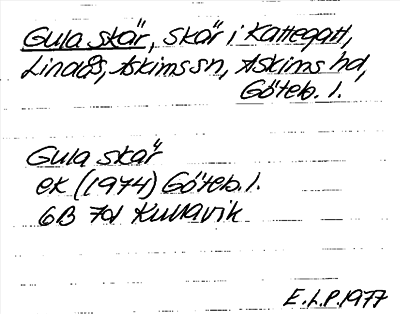 Gula skär, skär i Kattegatt,
Lindås, Askims sn, Askims hd,
Göteb. l.
Gula skär
ek (1974) Göteb. l.
6B 7d Kullavik
E. L. P. 1977